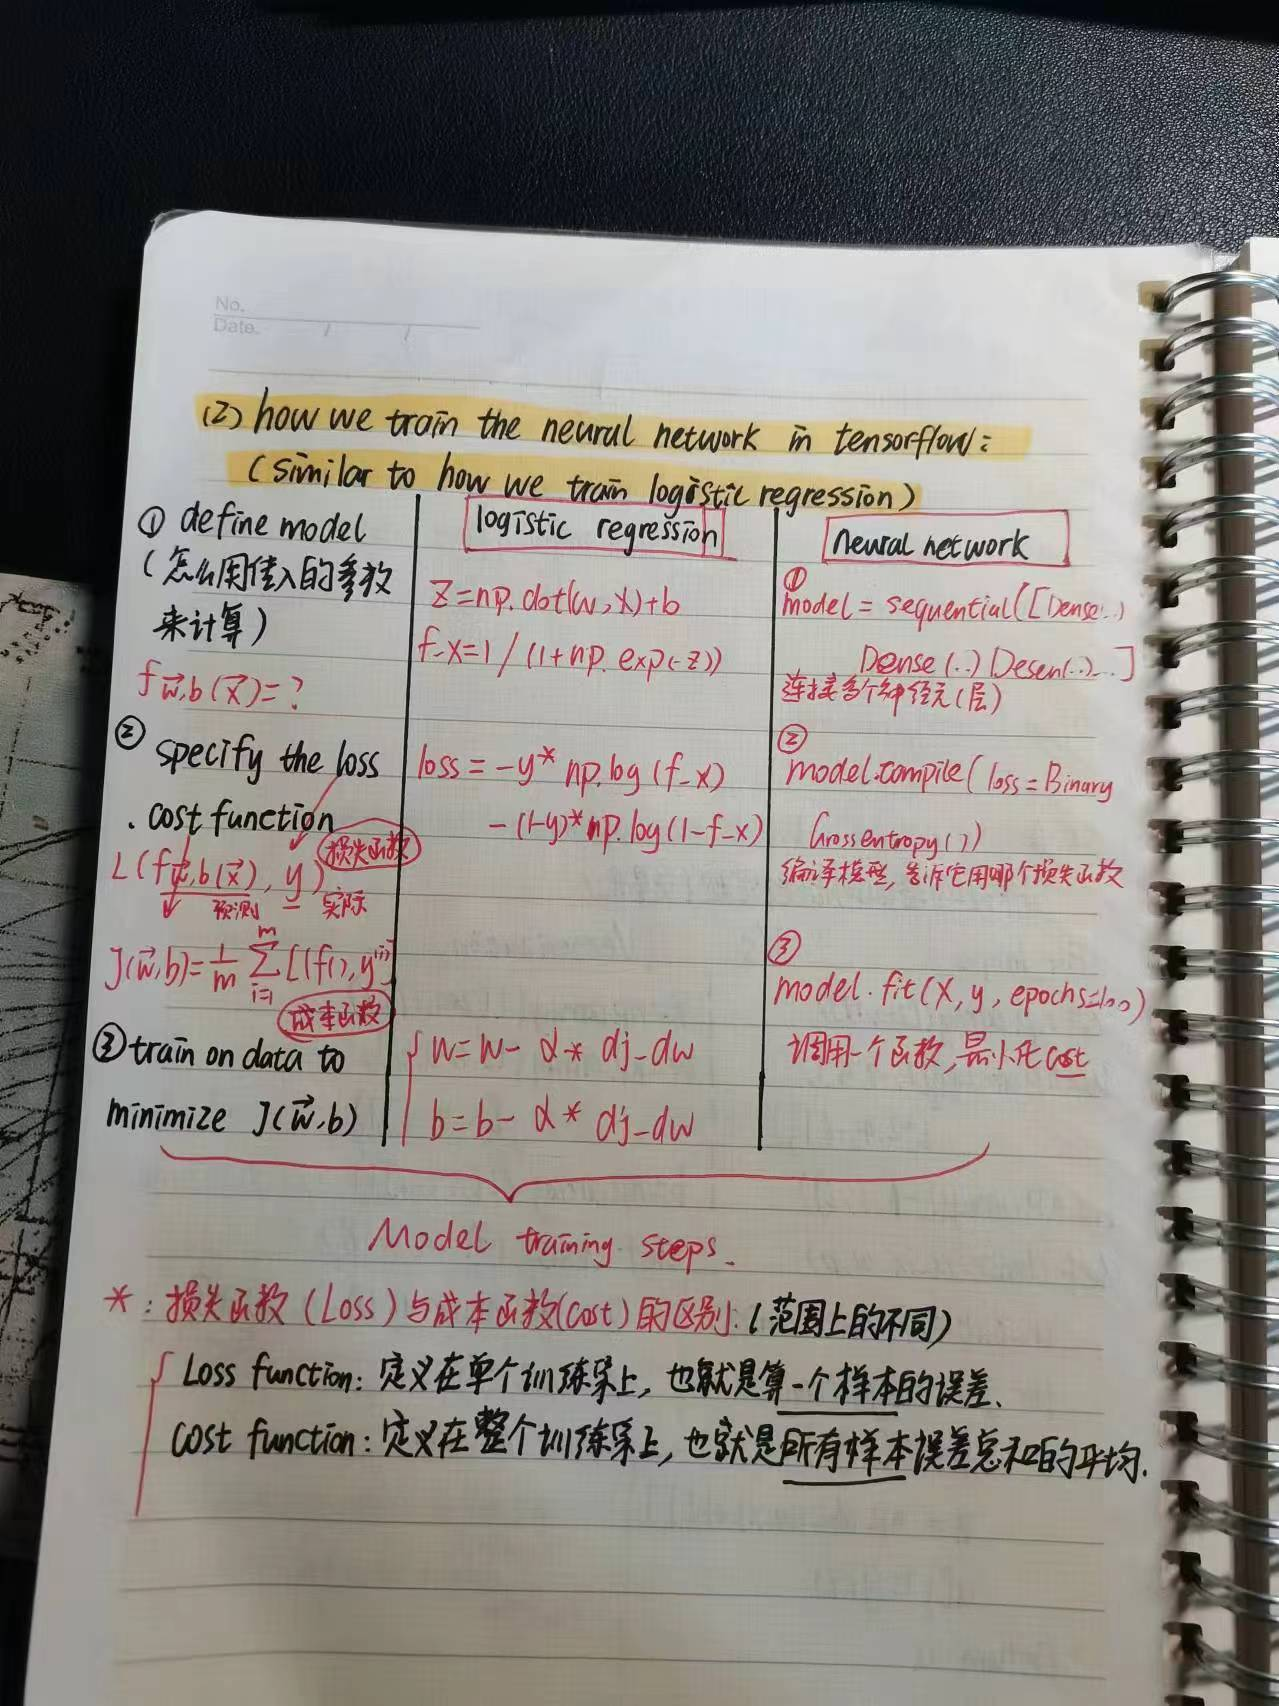 No.
Date. / /
(2) how we train the neural network in tensorflow:
(similar to how we train logistic regression)
① define model
(怎么用传入的参数
来计算)
f w⃗,b (x⃗)=?
② specify the loss
. cost function
损失函数
L(f w⃗,b(x⃗), y)
预测 实际
J(w⃗,b)=1/m Σ(i=1 to m) [(f(), y^(i)]
成本函数
③ train on data to
minimize J(w⃗,b)
logistic regression
z=np.dot(w,x)+b
f_x=1/(1+np.exp(-z))
loss = -y* np.log(f_x)
-(1-y)*np.log(1-f_x)
w=w- α * dj_dw
b=b- α * dj_dw
neural network
①
model = sequential([Dense..)
Dense(..) Desen(..)...]
连接多个神经元(层)
②
model.compile(loss=Binary
Crossentropy())
编译模型,告诉它用哪个损失函数
③
model.fit(X,y,epochs=100)
调用一个函数,最小化cost
Model training steps.
*: 损失函数(Loss)与成本函数(cost)的区别:(范围上的不同)
Loss function: 定义在单个训练集上,也就是算一个样本的误差.
cost function: 定义在整个训练集上,也就是所有样本误差总和的平均.